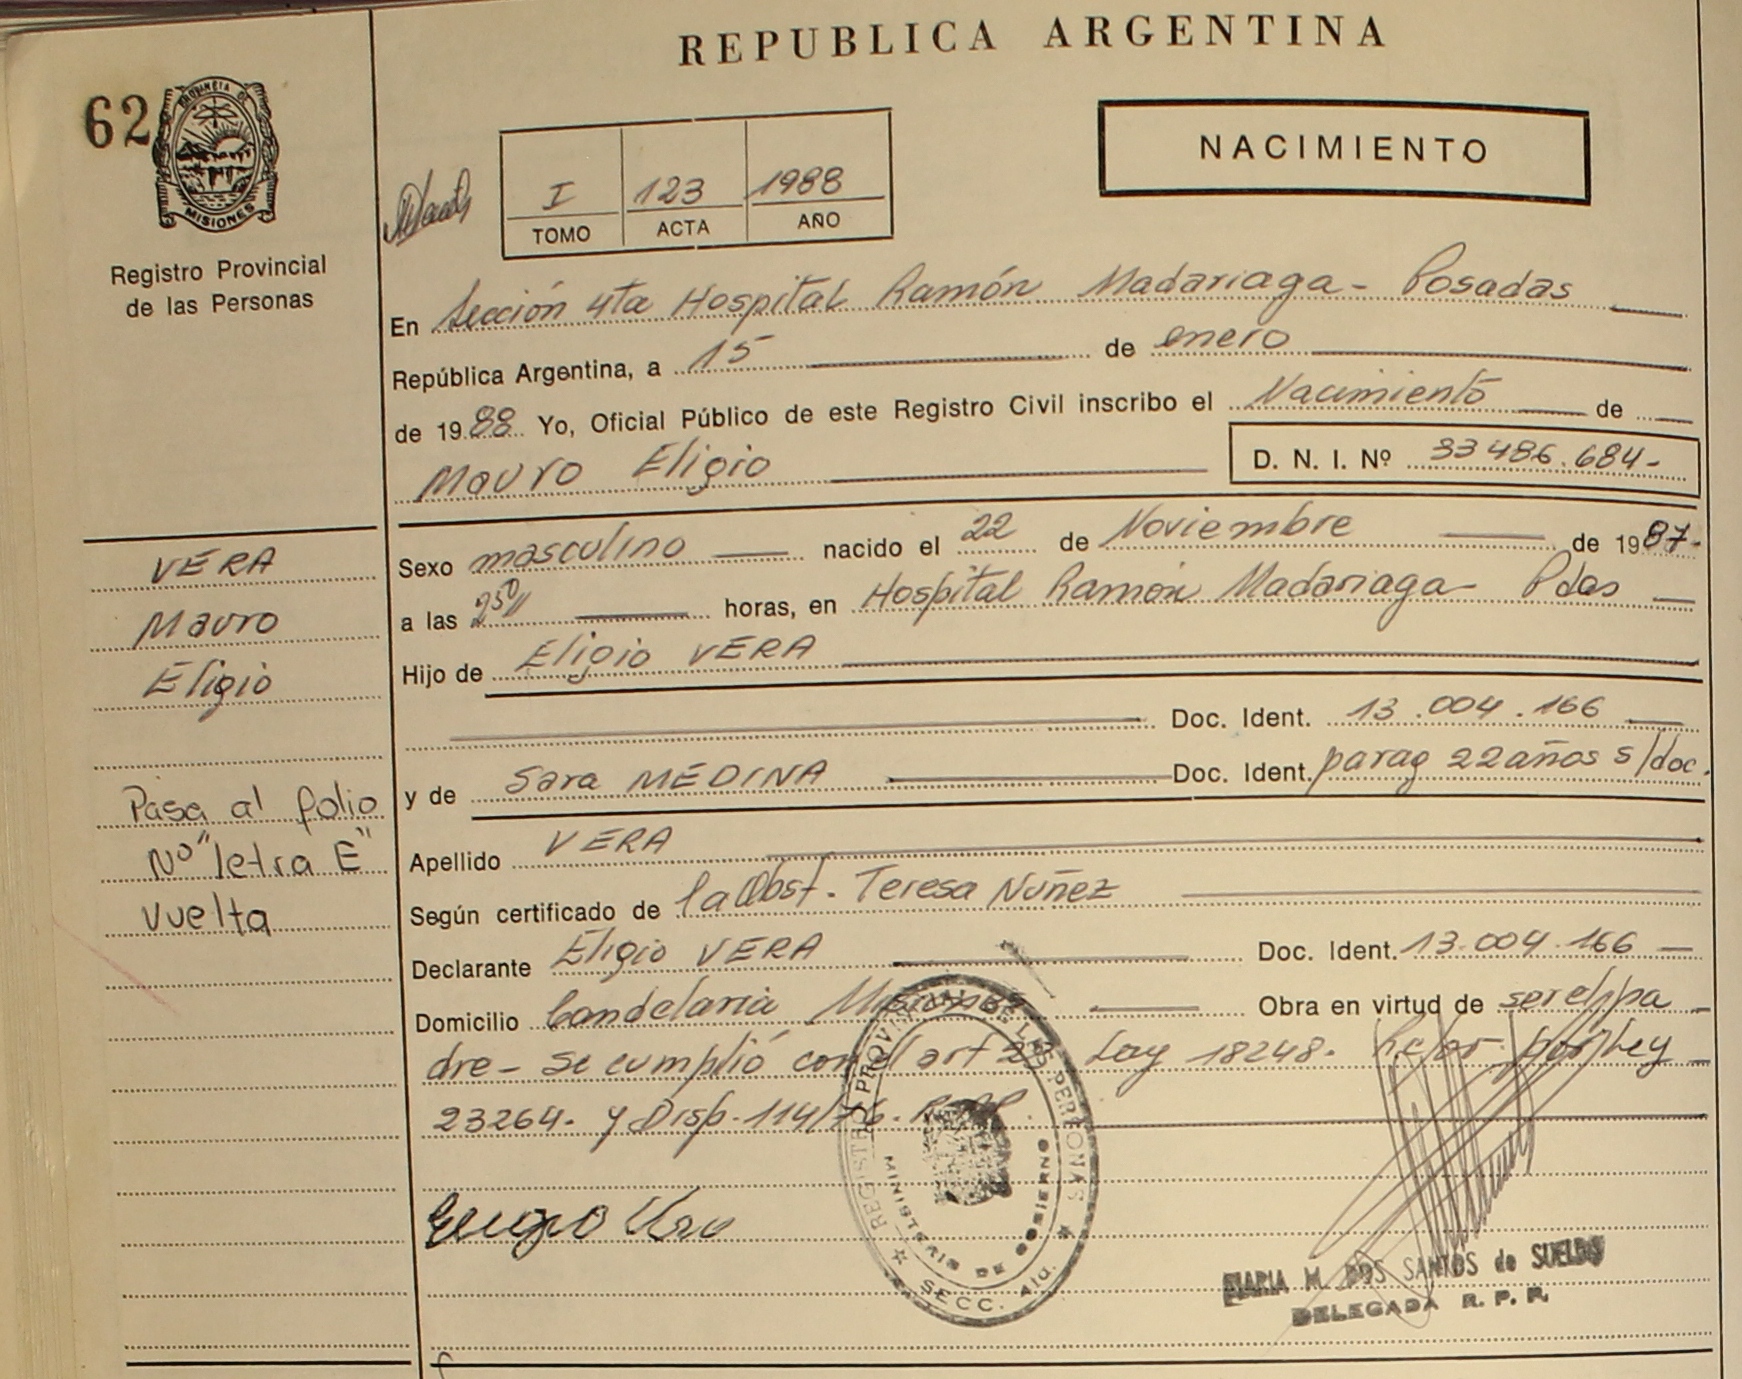 REPUBLICA ARGENTINA
62
PROVINCIA DE
MISIONES
Registro Provincial
de las Personas
NACIMIENTO
I 123 1988
TOMO ACTA AÑO
En Sección 4ta Hospital Ramón Madariaga - Posadas
República Argentina, a 15 de enero
de 1988 Yo, Oficial Público de este Registro Civil inscribo el Nacimiento de
Mauro Eligio
D. N. I. Nº 33486.684-
VERA
Mauro
Eligio
Pasa al folio
Nº "letra E"
Vuelta
Sexo masculino nacido el 22 de Noviembre de 1987-
a las horas, en Hospital Ramón Madariaga - Pdas
Hijo de Eligio VERA
Doc. Ident. 13.004.166
y de Sara MEDINA Doc. Ident. parag 22 años s/doc.
Apellido VERA
Según certificado de la Obst. Teresa Nuñez
Declarante Eligio VERA Doc. Ident. 13.004.166
Domicilio Candelaria Misiones Obra en virtud de ser el pa
dre - se cumplió con el art 2º Ley 18248. por Ley
23264. y Disp. 114/76. R.P.P.
REGISTRO PROVINCIAL DE LAS PERSONAS
MINISTERIO DE GOBIERNO
SECC. 4ta.
MARIA M. DOS SANTOS de SUELDO
DELEGADA R. P. P.